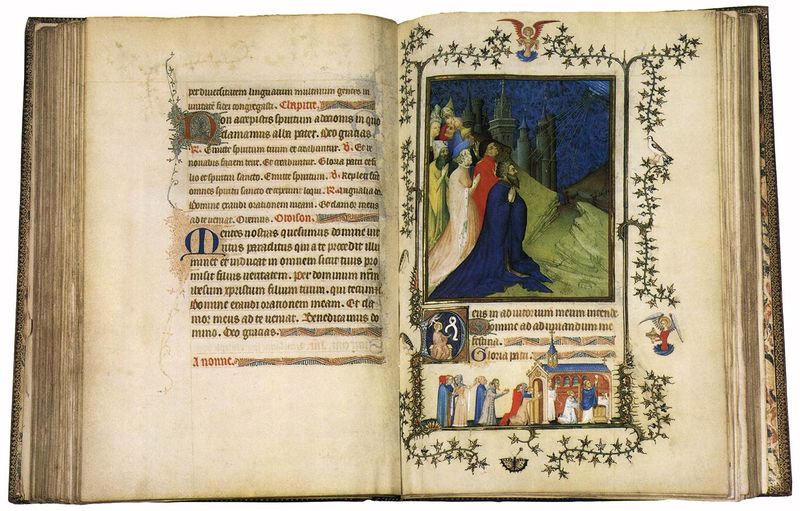 per diversitatem linguarum multarum gentes in
unitate fidei congregasti. Chapitre.
Non accepistis spiritum adopcionis in quo
clamamus abba pater. Deo gracias.
R. Emitte spiritum tuum et creabuntur. V. Et re
nouabis faciem terre. Et creabuntur. Gloria patri et fi
lio et spiritui sancto. Emitte spiritum. V. Repleti sunt
omnes spiritu sancto et ceperunt loqui. R.
Domine exaudi orationem meam. Et clamor meus
ad te ueniat. Oremus. Oroison.
Mentes nostras quesumus domine
paraclitus qui a te procedit illu
minet et inducat in omnem sicut tuus pro
misit filius ueritatem. Per dominum nrm
ihesum xpristum filium tuum. qui tecum
Domine exaudi orationem meam. Et cla
mor meus ad te ueniat. Benedicamus do
mino. Deo gracias.
A nonne.
Deus in adiutorium meum intende
Domine ad adiuuandum me
festina.
Gloria patri